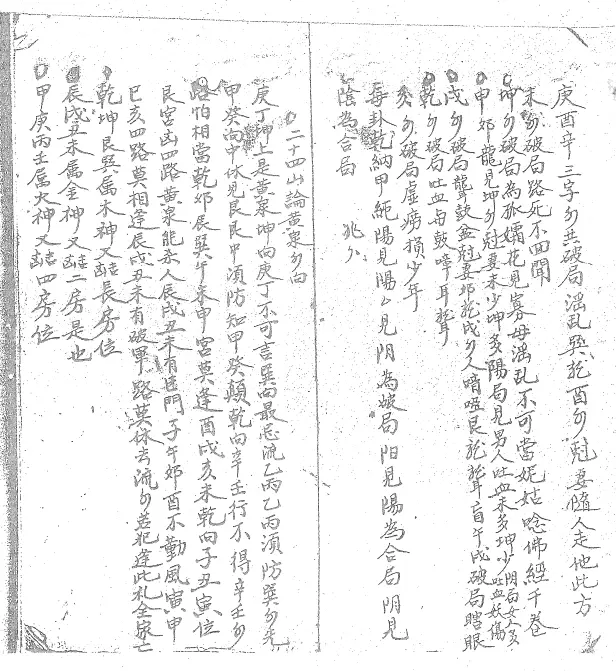 庚酉辛三字匆出破局淫乱巽乾酉匆尅妻隨人走他此方
未匆破局路死不回聞
坤匆破局為孤孀花見寡母淫乱不可當妮姑唸佛經千卷
申卯龍見坤匆尅妻未少坤多陽局見男人吐血未多坤少阴局女人多吐血妖傷
戌匆破局聾鼓盆尅妻卯乾戌匆人啞艮乾聾盲午戌破局瞎眼
乾匆破局吐血与鼓啼耳聾
亥匆破局虛痨損少年
每卦乾納甲純陽見陽陽見阴為破局阳見陽為合局阴見
陰為合局
二十四山論黃泉匆向
庚丁坤上是黃泉坤向庚丁不可言巽向最忌流乙丙乙丙須防巽匆先
甲癸向中休見艮艮中須防知甲癸顛乾向辛壬行不得辛壬匆
路怕相當乾卯辰巽午未申宮莫逢酉戌亥未乾向子丑寅位
艮宮凶四路黃泉能杀人辰戌丑未有臣門子午卯酉不動風寅申
巳亥四路莫相逢辰戌丑未有破軍路莫休去流匆若犯逢此礼全家亡
乾坤艮巽属木神又喆長房位
辰戌丑未属金神又喆二房是也
甲庚丙壬属火神又喆四房位